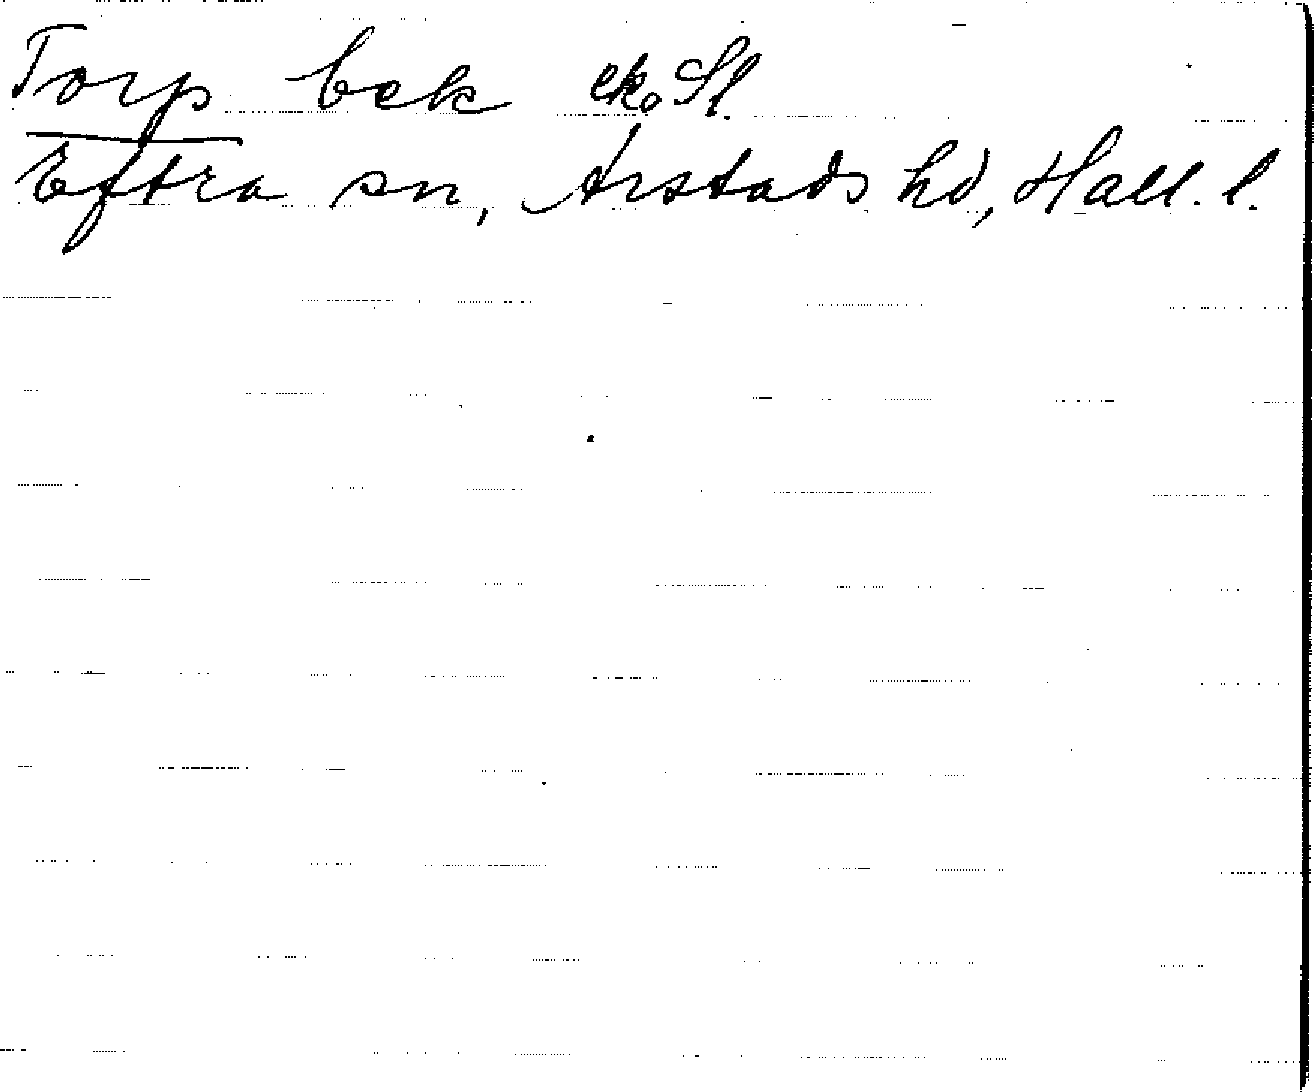 Torp bek ek. Bl.
Eftra sn, Årstads hd, Hall. l.